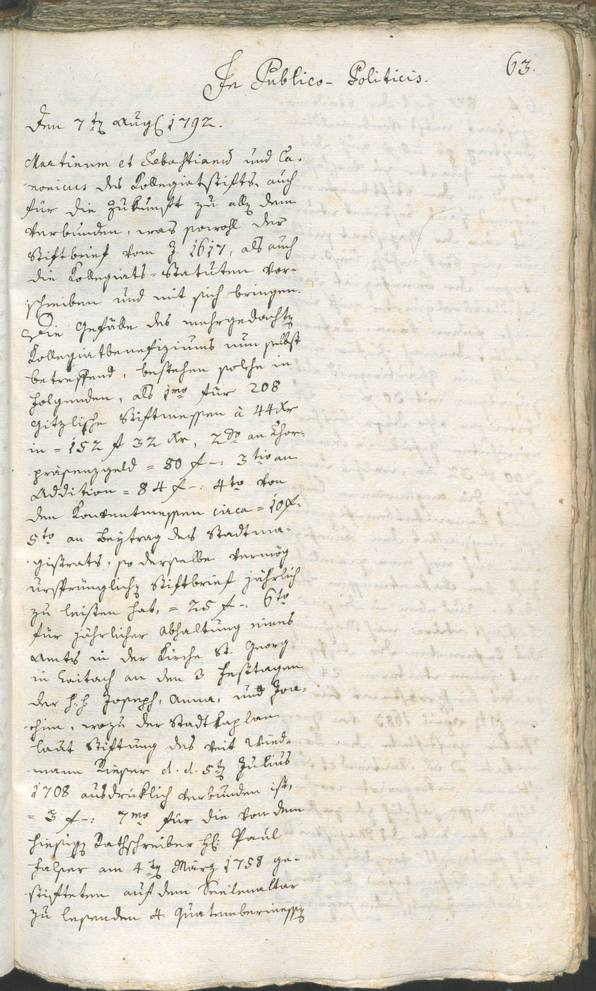 In Publico-Politicis.
63.
Den 7ten Aug. 1792.
Martinum et Sebastianum und Ca-
nonicus des Kollegiatstifts, auch
für die Zukunft zu all dem
verbunden, was sowohl der
Stiftbrief vom J 1617, als auch
die Kollegiats-Statuten vor-
schreiben und mit sich bringen.
Die Gefälle des mehrgedachten
Kollegiatbenefiziums nun selbst
betreffend, bestehen solche in
folgenden, als 1mo für 208
Gitzlische Stiftmessen à 44 Kr
in = 152 f 32 Kr, 2do an Chor-
präsenzgeld = 80 f-: 3tio an
Addition = 84 f-: 4to von
den Konventmessen circa = 10 f-
5to an Beytrag des Stadtma-
gistrats, so derselbe vermög
ursprünglichen Stiftbrief jährlich
zu leisten hat, = 25 f-: 6to
für jährlicher Abhaltung eines
Amts in der Kirche St. Georg
in Taitach an den 3 Festtagen
der hh Joseph, Anna, und Joa-
chim, wozu der Stadtkaplan
laut Stiftung des Veit Wied-
mann Kieser d. d. 5ten Julius
1708 ausdrücklich verbunden ist,
= 3 f-: 7mo für die von dem
hiesigen Rathschreiber H: Paul
am 4ten März 1758 ge-
stifteten auf dem Seelenaltar
zu lesenden 4 Quatembermessen